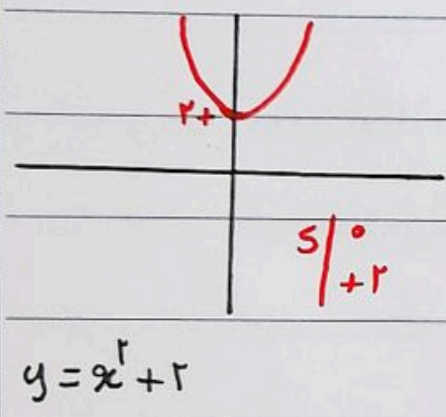 ۲+
S | ۰
+۲
y = x^۲ + ۲